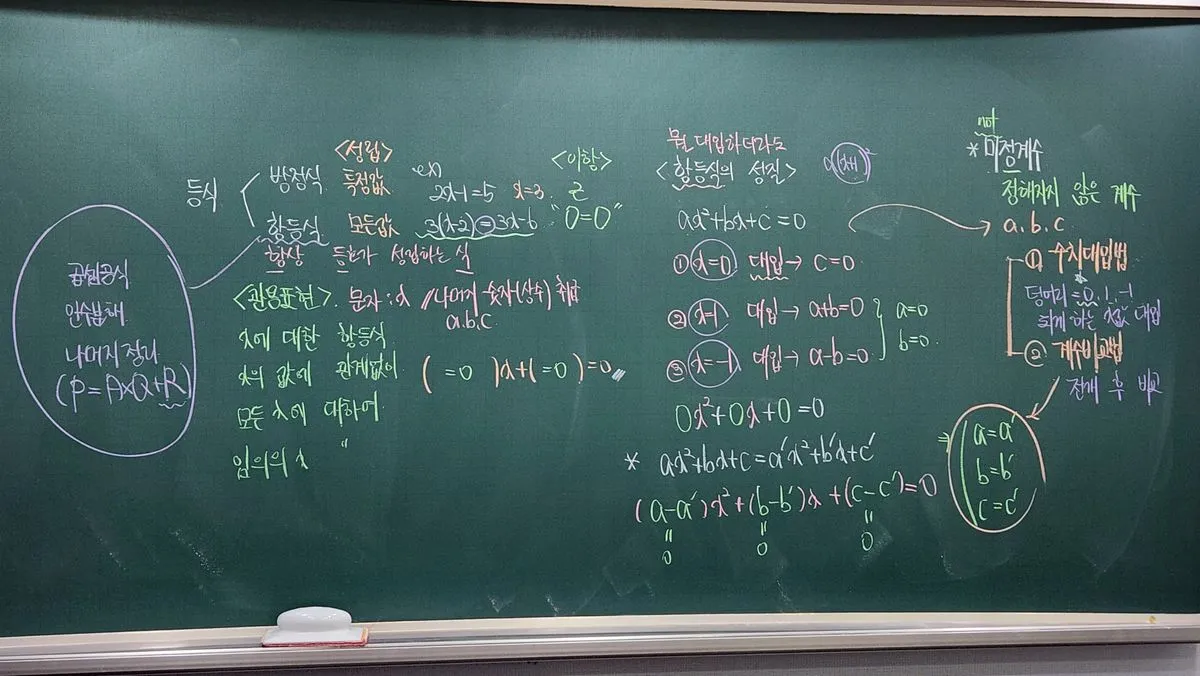 곱셈공식
인수분해
나머지정리
(P=A×Q+R)
등식
방정식
항등식
<성립>
특정값
모든값
ex)
2x-1=5 x=3
3(x-2)=3x-6
<이항>
"0=0"
항상 등호가 성립하는 식
<관용표현> 문자: x // 나머지 숫자(상수) 취급
a.b.c
x에 대한 항등식
x의 값에 관계없이
모든 x에 대하여
임의의 x "
( =0 )x+( =0 )=0
뭘 대입하더라도
<항등식의 성질>
ax²+bx+c=0
① x=0 대입→ c=0
② x=1 대입→ a+b=0
③ x=-1 대입→ a-b=0
a=0
b=0
0x²+0x+0=0
* ax²+bx+c=a'x²+b'x+c'
(a-a')x²+(b-b')x+(c-c')=0
" " "
0 0 0
⇒ a=a'
b=b'
c=c'
not
* 미정계수
정해지지 않은 계수
a.b.c
① 수치대입법
덩어리=0, 1, -1
되게 하는 x값 대입
② 계수비교법
전개 후 비교